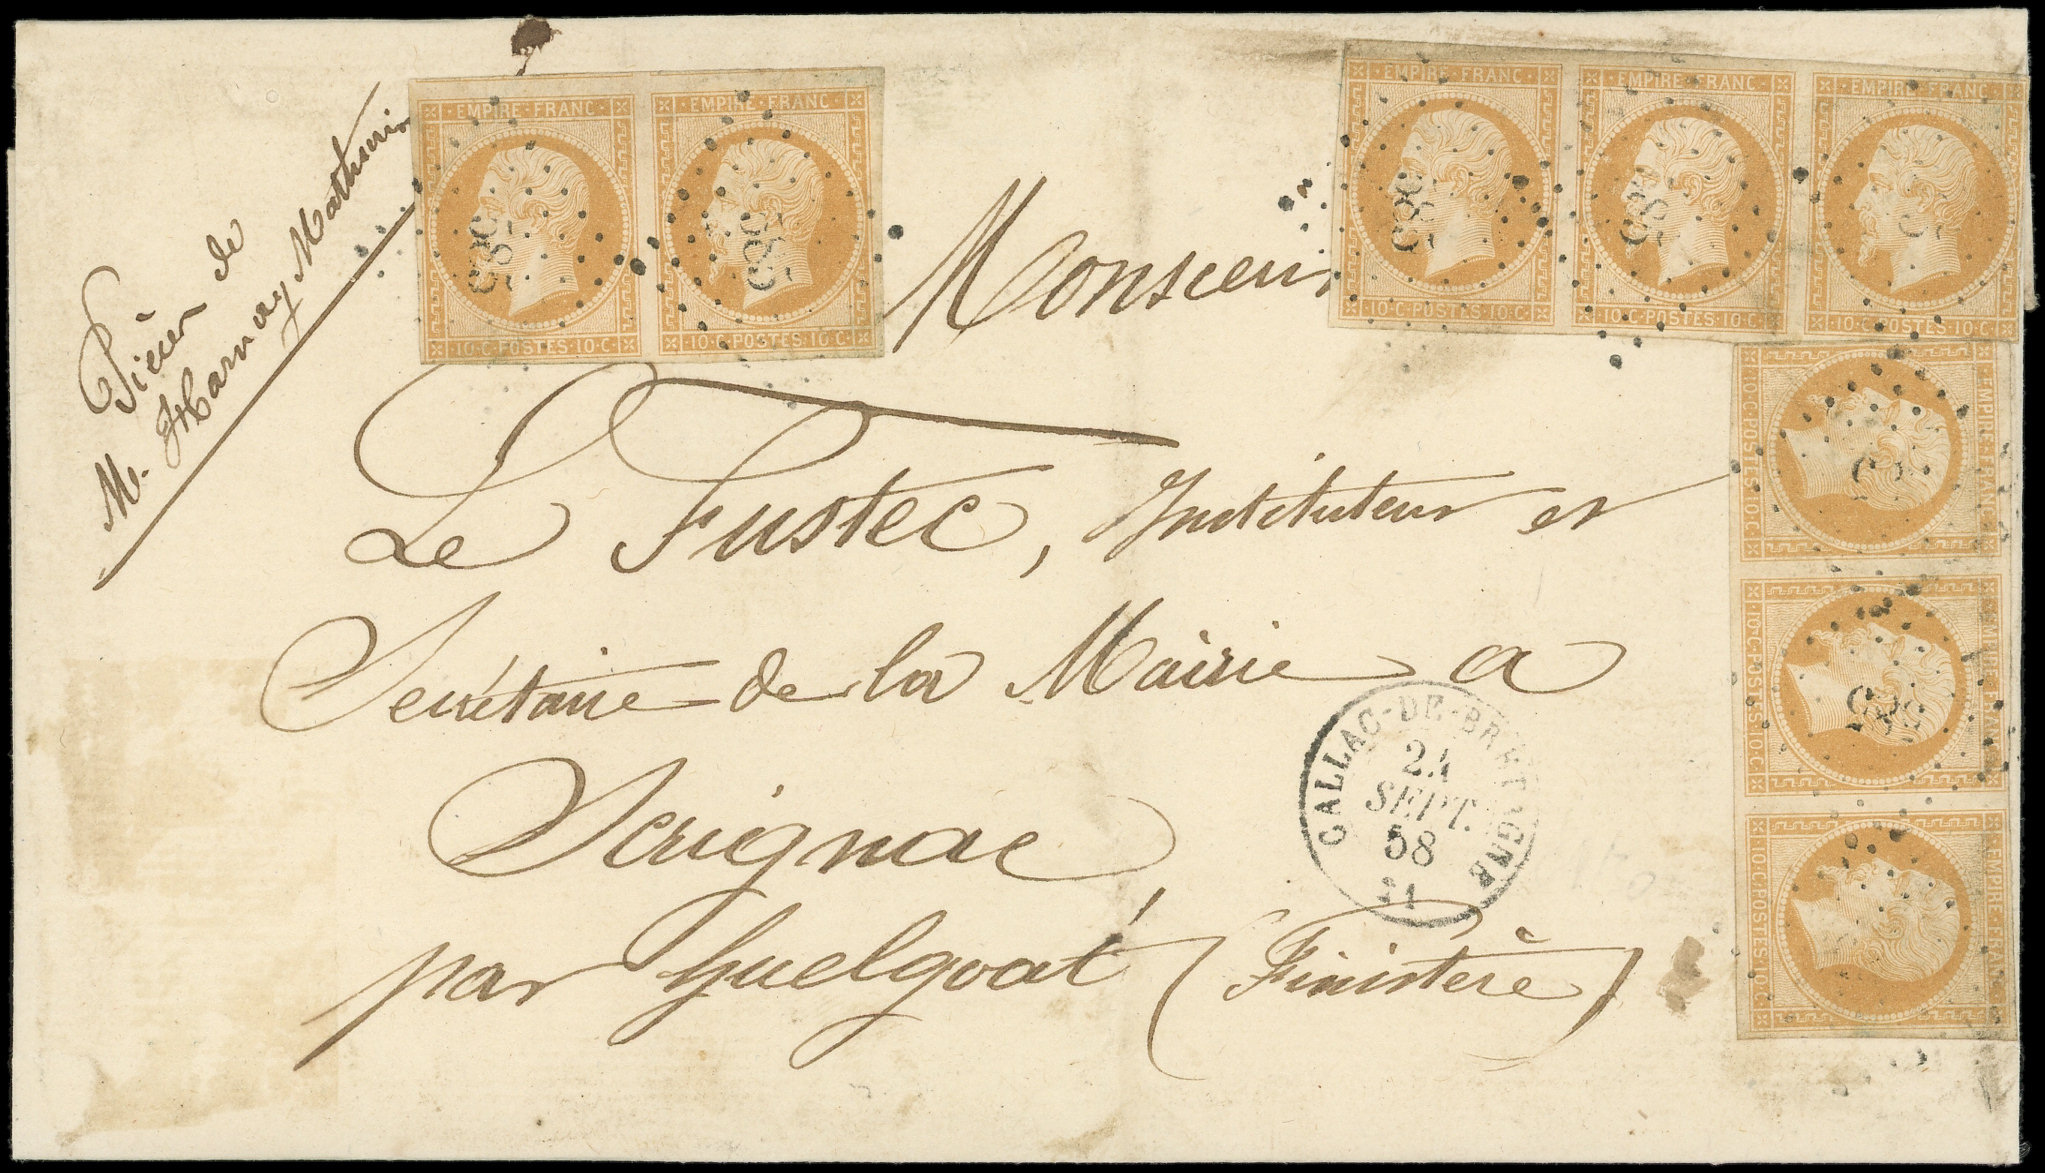 Pièces de
M. Harnay Mathurin
EMPIRE·FRANC·
10·C·POSTES·10·C·
EMPIRE·FRANC·
10·C·POSTES·10·C·
EMPIRE·FRANC·
10·C·POSTES·10·C·
EMPIRE·FRANC·
10·C·POSTES·10·C·
EMPIRE·FRANC·
10·C·POSTES·10·C·
EMPIRE·FRANC·
10·C·POSTES·10·C·
EMPIRE·FRANC·
10·C·POSTES·10·C·
EMPIRE·FRANC·
10·C·POSTES·10·C·
Monsieur
Le Fustec, Instituteur et
Secrétaire de la Mairie a
Scrignac,
par Huelgoat (Finistère)
CALLAC-DE-BRETAGNE
SEPT.
58